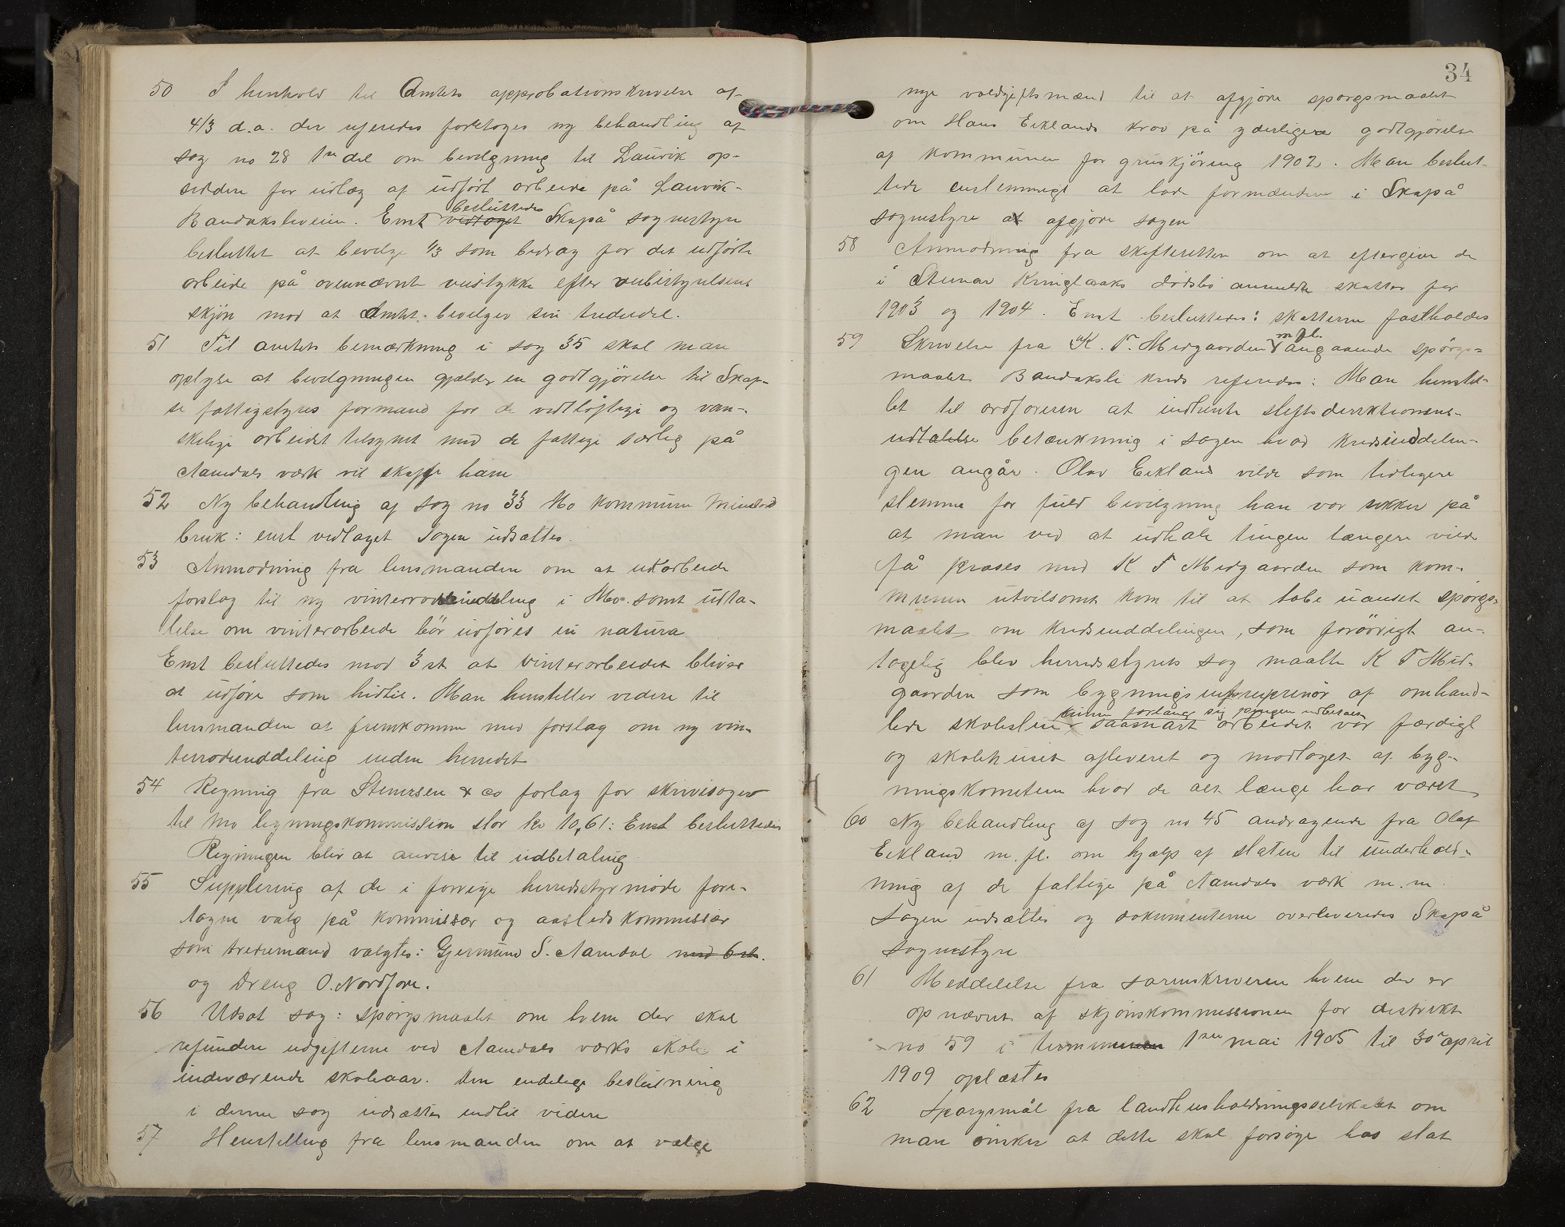 50 I henhold til Amtets approbationskrivelse af
4/3 d.a. der refereredes foretoges ny behandling af
sag no 28 1ste del om bevilgning til Lauvik op-
siddere for udlæg af udført arbeide på Lauvik-
Bandakslieveien. Enst vedtoget besluttedes Skapå sognestyre
besluttet at bevilge 1/3 som bidrag for det udførte
arbeide på ovennævnt veistykke efter veibestyrelsens
skjøn mod at Amtet bevilger sin trediedel.
51 Til amtets bemærkning i sag 35 skal man
oplyse at bevilgningen gjælder en godtgjørelse til Skap-
se fattigstyres formand for de vidtløftige og van-
skelige arbeidet tilsynet med de fattige særlig på
Aamdals værk vil skaffe ham
52 Ny behandling af sag no 33 Mo kommune Minerva
bruk: enst vedtaget Sagen udsættes.
53 Anmodning fra lensmanden om at udarbeide
forslag til ny vinterrodeinddeling i Mo samt udta-
lelse om vinterarbeide bør udføres in natura
Enst besluttedes mod 3 st at vinterarbeidet bliver
at udføre som hidtil. Man henstiller videre til
lensmanden at fremkomme med forslag om ny vin-
terrodeinddeling inden herredet
54 Regning fra Stenersen & co forlag for skrivesager
til Mo ligningskommission stor kr 10,61: Enst besluttedes
Regningen blir at anvise til udbetaling
55 Supplering af de i forrige herredsstyrmøde fore-
tagne valg på kommissær og aastedskommissær
som tredemand valgtes: Gjermund S. Aamdal med 6 st.
og Dreng O. Nordjore.
56 Udsat sag: spørgsmaalet om hvem der skal
refundere udgifterne ved Aamdals værks skole i
indeværende skoleaar. Den endelige beslutning
i denne sag udsættes indtil videre
57 Henstilling fra lensmanden om at vælge
34
nye voldgiftsmænd til at afgjøre spørgsmaalet
om Hans Eiklands krav på yderligere godtgjørelse
af kommunen for gruskjøring 1902. Man beslut-
tede enstemmigt at lade formanden i Skapå
sognestyre at afgjøre sagen
58 Anmodning fra skifteretten om at eftergive de
i Steinar Kringlaaks dødsbo anmeldte skatter for
1903 og 1904. Enst besluttedes: skatterne fastholdes
59 Skrivelse fra K. T. Midgaarden m fl. angaaende spørgs-
maalet Bandaksli kreds refereredes: Man henstil-
let til ordføreren at indhente stiftsdirektionens
udtalelse betænkning i sagen hvad kredsinddelin-
gen angår. Olav Eikland vilde som tidligere
stemme for fuld bevilgning han var sikker på
at man ved at udhale tingen længere vilde
få proses med K T Midgaarden som kom-
munen utvilsomt kom til at tabe uanset spørgs-
maalet om kredsinddelingen, som forøvrigt an-
tagelig blev herredsstyrets sag maatte K T Mid-
gaarden som bygningsentreprenør af omhand-
lede skolestue kunne forlange sig pengene udbetalt saasnart arbeidet var færdigt
og skolehuset afleveret og modtaget af byg-
ningskomiteen hvor de alt længe har været
60 Ny behandling af sag no 45 andragende fra Olaf
Eikland m. fl. om hjælp af staten til underhold-
ning af de fattige på Aamdals værk m.m.
Sagen udsættes og dokumenterne overleveredes Skapå
sognestyre
61 Meddelelse fra sorenskriveren hvem der er
opnævnt af skjønskommissionen for distrikt
no 59 i kommunen 1ste mai 1905 til 30te april
1909 oplæstes
62 Spørgsmål fra landhusholdningsselskabet om
man ønsker at dette skal forsøge hos stat